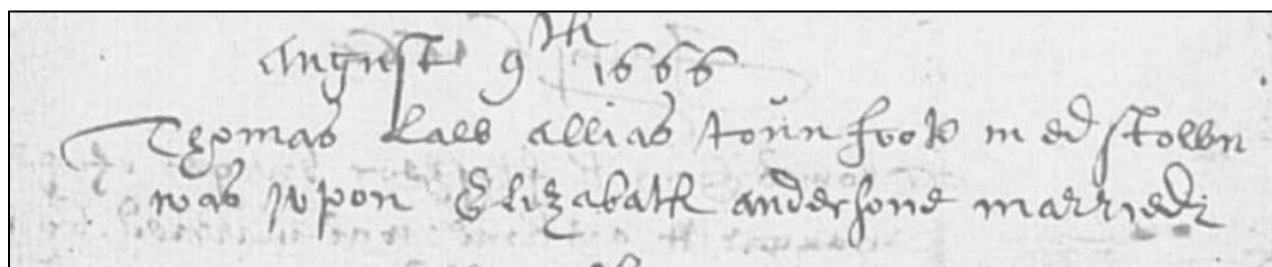 August 9th 1666
Thomas Law allias toŭn foot in edstown
was vpon Elizabath andersone married